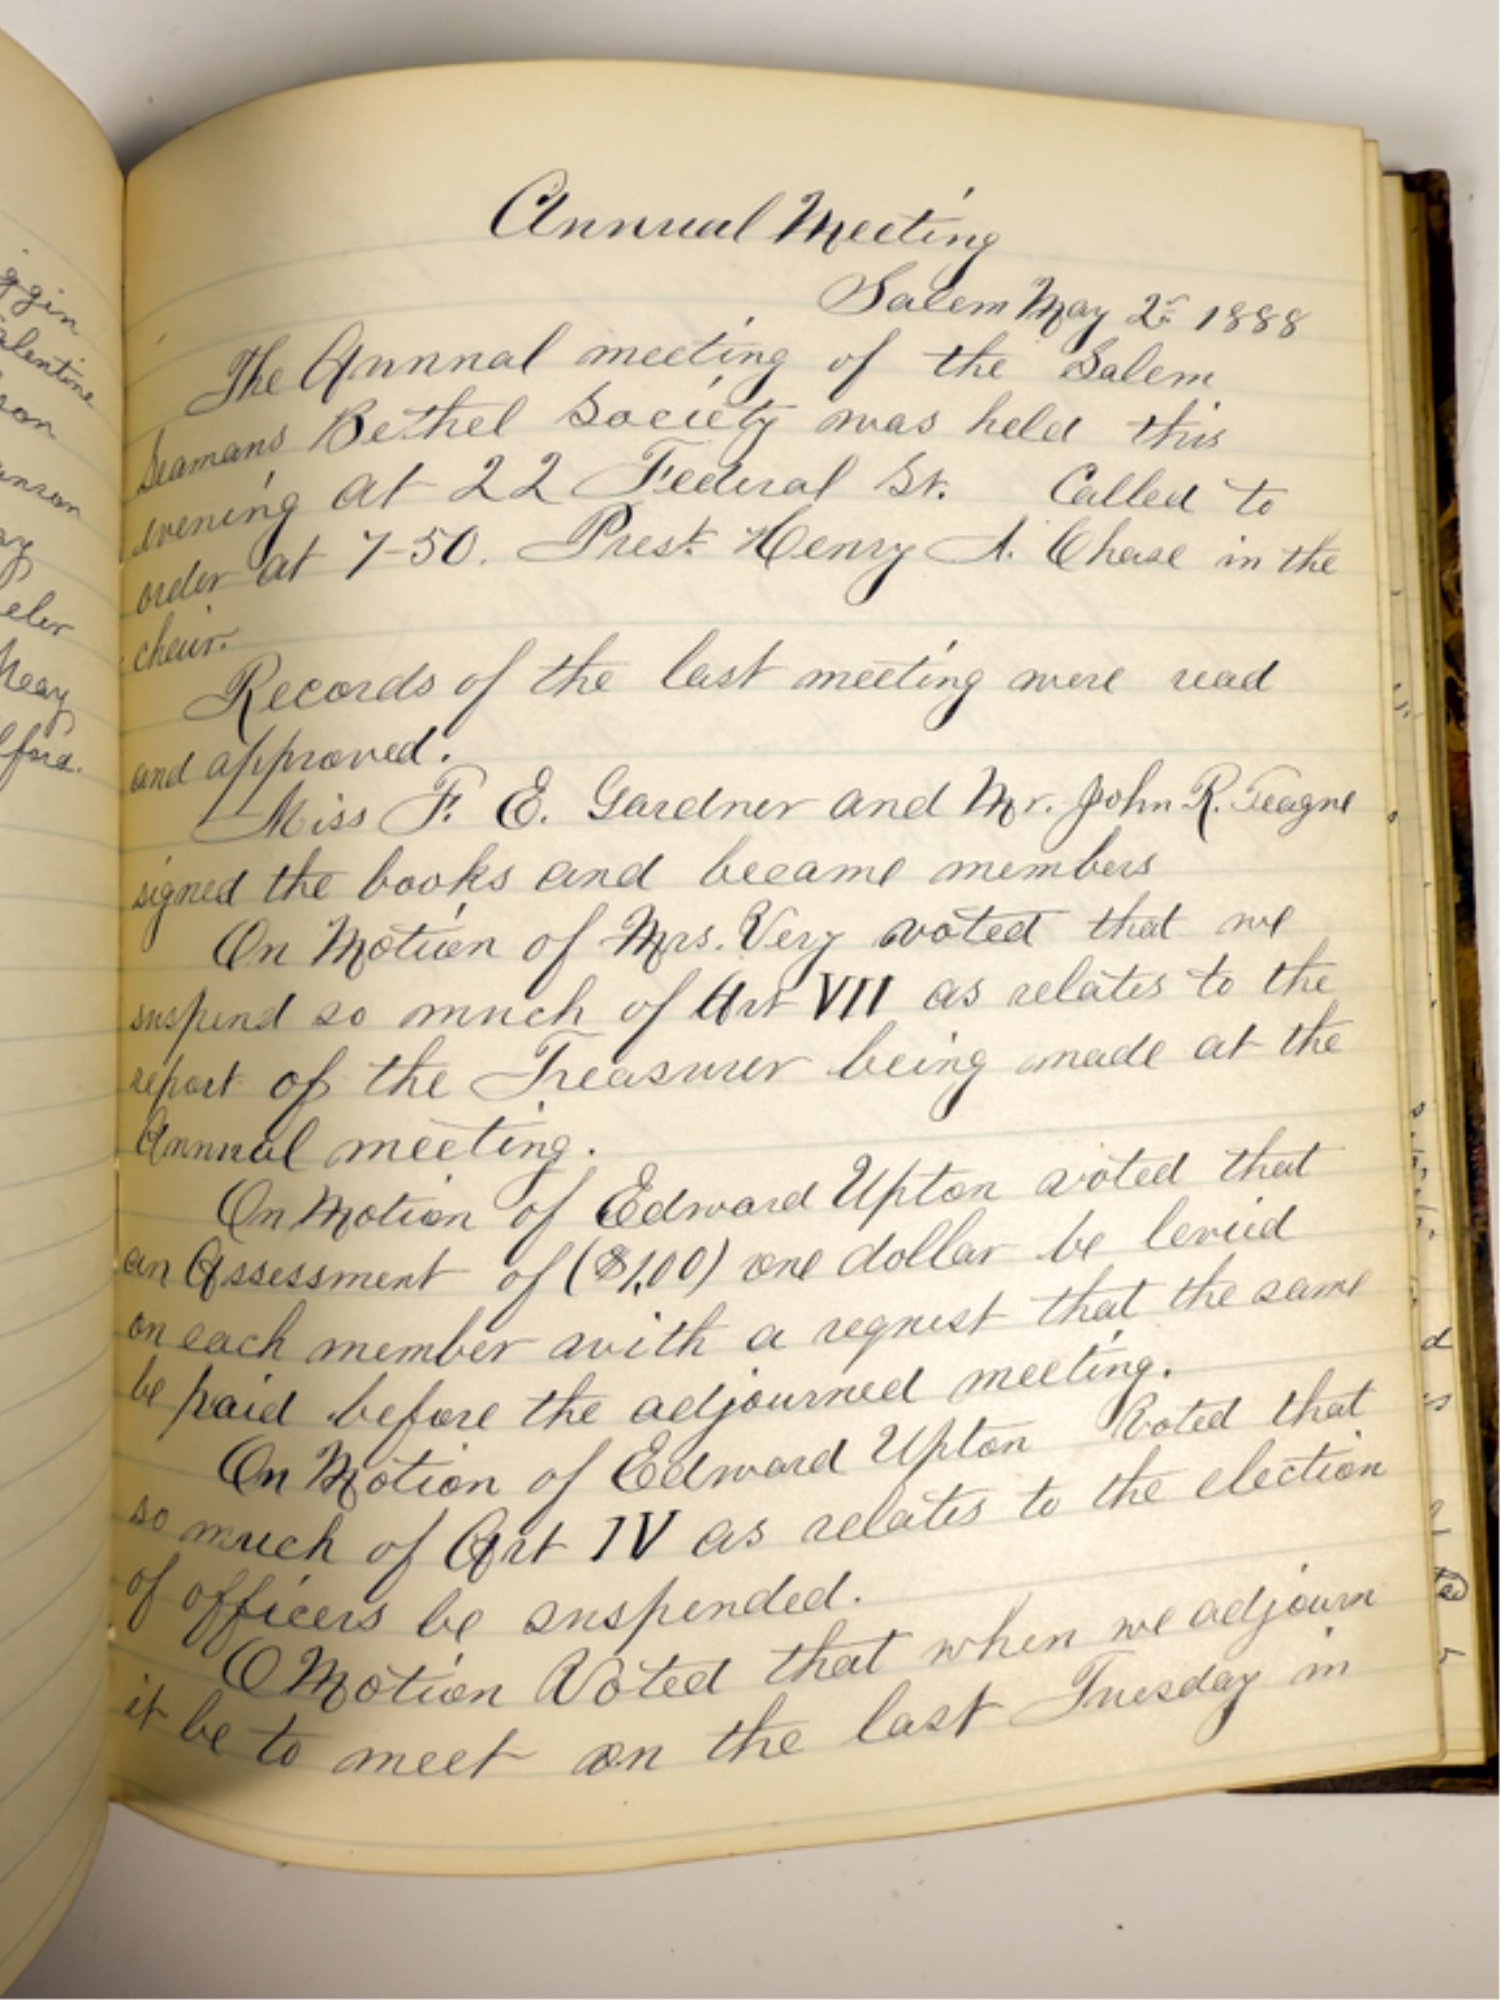 Annual Meeting
Salem May 2d 1888
The Annual meeting of the Salem
Seamans Bethel Society was held this
evening at 22 Federal St. Called to
order at 7-50. Prest. Henry A. Chase in the
chair.
Records of the last meeting were read
and approved.
Miss F. E. Gardner and Mr. John R. Teague
signed the books and became members
On Motion of Mrs. Very voted that we
suspend so much of Art VII as relates to the
report of the Treasurer being made at the
Annual meeting.
On Motion of Edward Upton voted that
an Assessment of ($1,00) one dollar be levied
on each member with a request that the same
be paid before the adjourned meeting.
On Motion of Edward Upton Voted that
so much of Art IV as relates to the election
of officers be suspended.
O Motion Voted that when we adjourn
it be to meet on the last Tuesday in